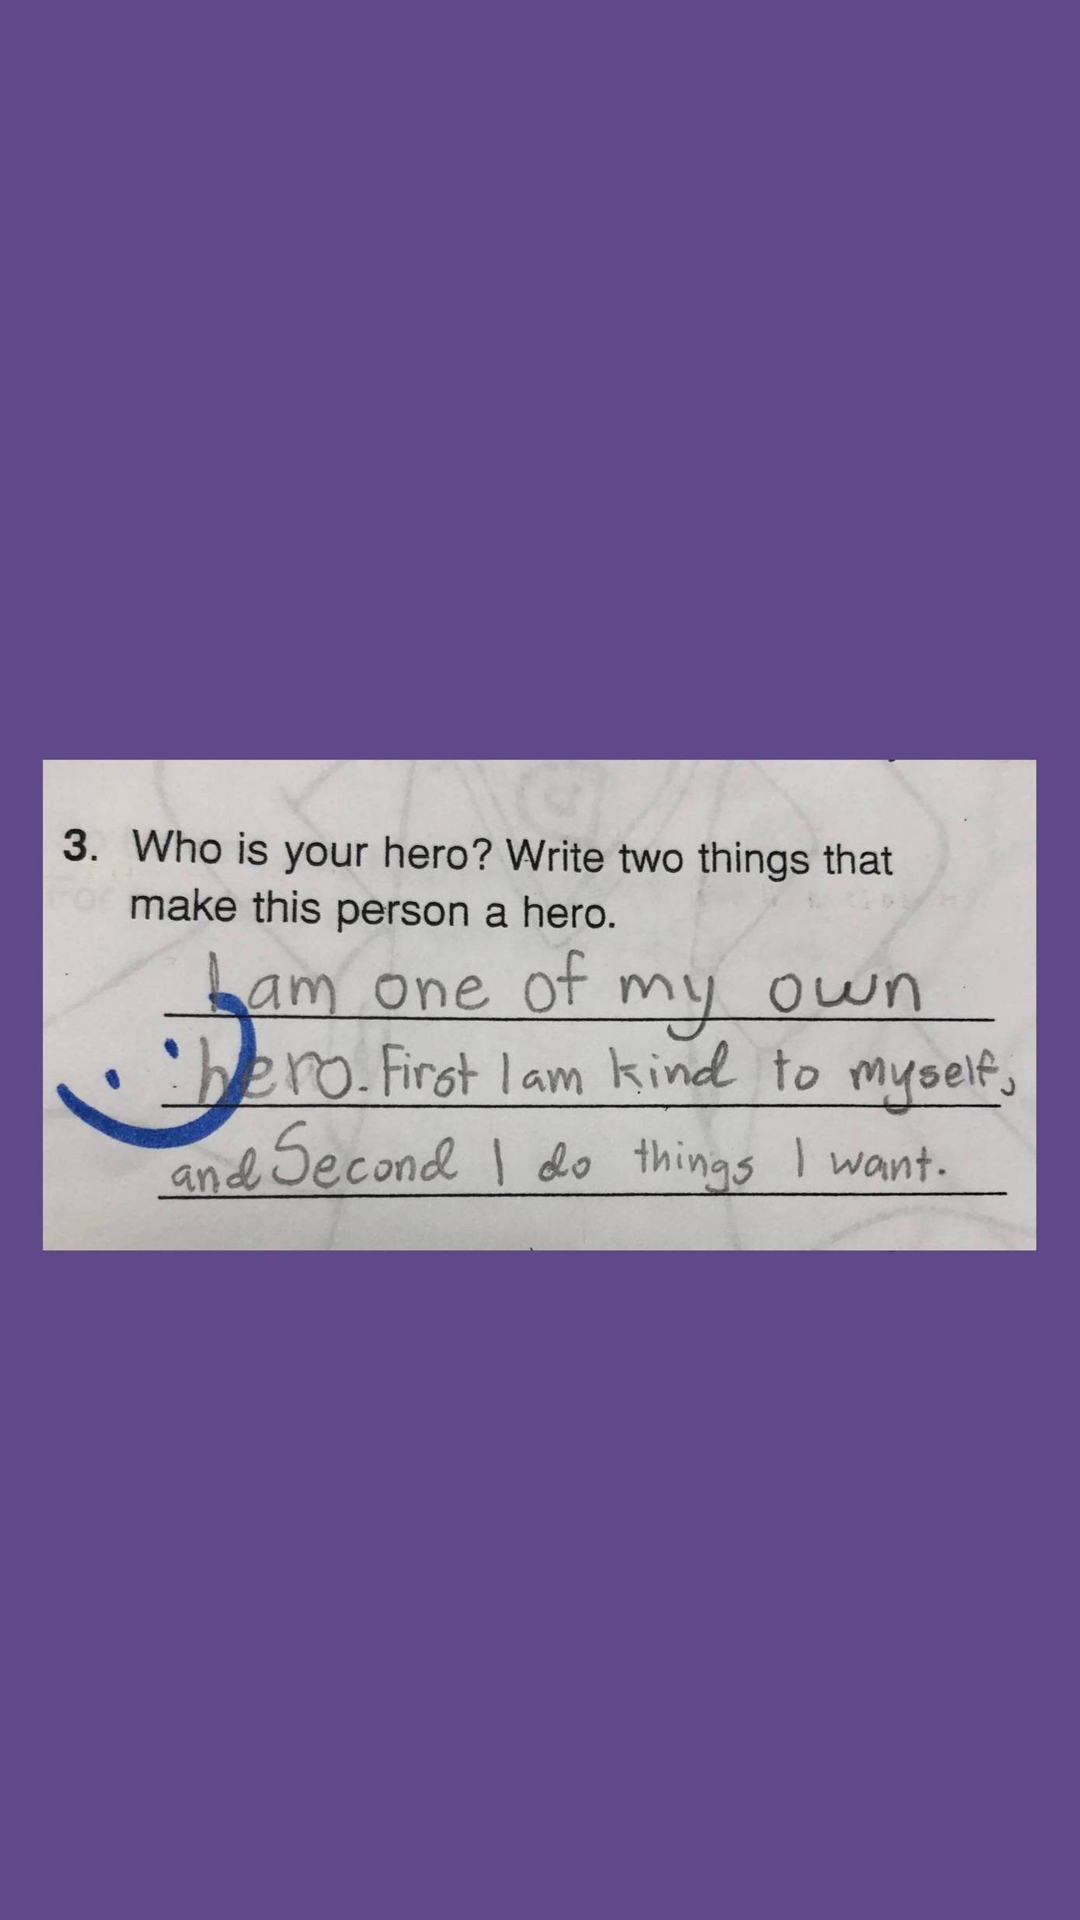 3. Who is your hero? Write two things that
make this person a hero.
I am one of my own
hero. First I am kind to myself,
and Second I do things I want.